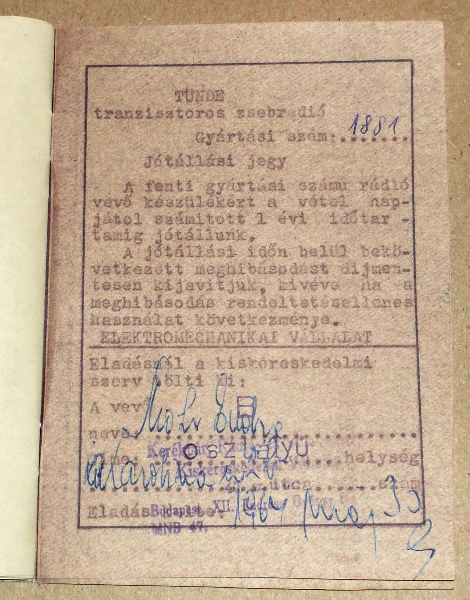 TÜNDE
tranzisztoros zsebradió
Gyártási szám: 1881
Jótállási jegy
A fenti gyártási számu rádió
vevő készülékért a vétel nap-
jától számitott 1 évi időtar -
tamig jótállunk.
A jótállási időn belül bekö-
vetkezett meghibásodást dijmen-
tesen kijavitjuk, kivéve ha a
meghibásodás rendeltetésellenes
használat következménye.
ELEKTROMECHANIKAI VÁLLALAT
Eladásnál a kiskereskedelmi
szerv tölti ki:
A vevő
neve
II
osztályu
helység
utca szám
Budapest, XII.
Eladás 1967 máj
MNB 47.